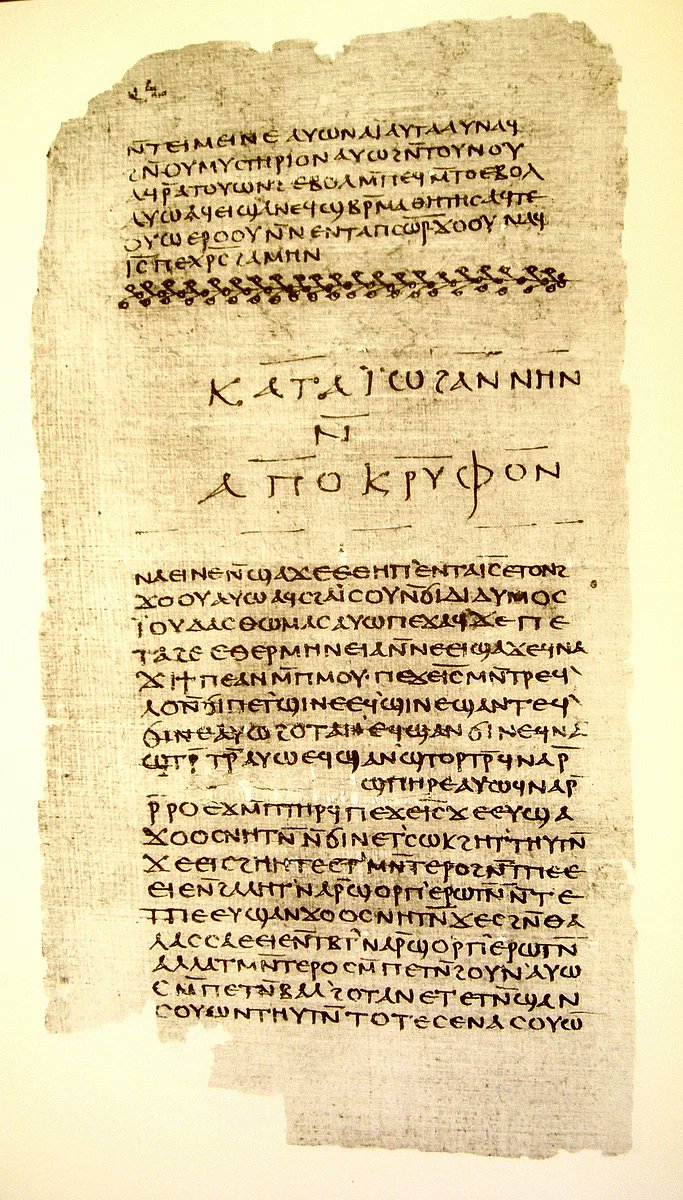 ⲛ̄ⲧⲉⲓⲙⲉⲓⲛⲉ ⲁⲩⲱ ⲛⲁⲓ̈ ⲁⲩⲧⲁⲁⲩ ⲛⲁϥ
ϩⲛ̄ⲟⲩⲙⲩⲥⲧⲏⲣⲓⲟⲛ ⲁⲩⲱ ϩⲛ̄ⲧⲟⲩⲛⲟⲩ
ⲁϥⲣ̄ⲁⲧⲟⲩⲱⲛϩ ⲉⲃⲟⲗ ⲙ̄ⲡⲉϥⲙ̄ⲧⲟ ⲉⲃⲟⲗ
ⲁⲩⲱ ⲁϥⲉⲓ ϣⲁⲛⲉϥϣⲃⲣ̄ⲙⲁⲑⲏⲧⲏⲥ ⲁϥⲧⲉ
ⲟⲩⲱ ⲉⲣⲟⲟⲩ ⲛ̄ⲛⲉⲛⲧⲁⲡⲥⲱ̄ⲣ̄ ϫⲟⲟⲩ ⲛⲁϥ
ⲓ̄ⲥ̄ ⲡⲉⲭ̄ⲣ̄ⲥ̄ ϩⲁⲙⲏⲛ
ⲕⲁⲧⲁ ⲓ̈ⲱϩⲁⲛⲛⲏⲛ
ⲛ̄
ⲁⲡⲟⲕⲣⲩⲫⲟⲛ
ⲛⲁⲉⲓ ⲛⲉ ⲛ̄ϣⲁϫⲉ ⲉⲑⲏⲡ ⲉⲛⲧⲁⲓ̄ⲥ̄ ⲉⲧⲟⲛϩ
ϫⲟⲟⲩ ⲁⲩⲱ ⲁϥⲥϩⲁⲓ̈ⲥⲟⲩ ⲛ̄ϭⲓ ⲇⲓⲇⲩⲙⲟⲥ
ⲓ̈ⲟⲩⲇⲁⲥ ⲑⲱⲙⲁⲥ ⲁⲩⲱ ⲡⲉϫⲁϥ ϫⲉ ⲡⲉ
ⲧⲁϩⲉ ⲉⲑⲉⲣⲙⲏⲛⲉⲓⲁ ⲛ̄ⲛⲉⲉⲓϣⲁϫⲉ ϥⲛⲁ
ϫⲓϯⲡⲉ ⲁⲛ ⲙ̄ⲡⲙⲟⲩ ⲡⲉϫⲉⲓ̄ⲥ̄ ⲙⲛ̄ⲧⲣⲉϥ
ⲗⲟ ⲛ̄ϭⲓ ⲡⲉⲧϣⲓⲛⲉ ⲉϥϣⲓⲛⲉ ϣⲁⲛⲧⲉϥ
ϭⲓⲛⲉ ⲁⲩⲱ ϩⲟⲧⲁⲛ ⲉϥϣⲁⲛϭⲓⲛⲉ ϥⲛⲁ
ϣⲧⲣ̄ⲧⲣ̄ ⲁⲩⲱ ⲉϥϣⲁⲛϣⲧⲟⲣⲧⲣ̄ ϥⲛⲁⲣ̄
ϣⲡⲏⲣⲉ ⲁⲩⲱ ϥⲛⲁⲣ̄
ⲣ̄ⲣⲟ ⲉϫⲙ̄ⲡⲧⲏⲣϥ ⲡⲉϫⲉⲓ̄ⲥ̄ ϫⲉ ⲉⲩϣⲁ
ϫⲟⲟⲥ ⲛⲏⲧⲛ̄ ⲛ̄ϭⲓ ⲛⲉⲧⲥⲱⲕ ϩⲏⲧⲧⲏⲩⲧⲛ̄
ϫⲉ ⲉⲓⲥϩⲏⲏⲧⲉ ⲉⲧⲙⲛ̄ⲧⲉⲣⲟ ϩⲛ̄ⲧⲡⲉ ⲉ
ⲉⲓⲉ ⲛ̄ϩⲁⲗⲏⲧ ⲛⲁⲣ̄ϣⲟⲣⲡ ⲉⲣⲱⲧⲛ̄ ⲛ̄ⲧⲉ
ⲧⲡⲉ ⲉⲩϣⲁⲛϫⲟⲟⲥ ⲛⲏⲧⲛ̄ ϫⲉ ⲥϩⲛ̄ⲑⲁ
ⲗⲁⲥⲥⲁ ⲉⲉⲓⲉ ⲛ̄ⲧⲃⲧ ⲛⲁⲣ̄ϣⲟⲣⲡ ⲉⲣⲱⲧⲛ̄
ⲁⲗⲗⲁ ⲧⲙⲛ̄ⲧⲉⲣⲟ ⲥⲙ̄ⲡⲉⲧⲛ̄ϩⲟⲩⲛ ⲁⲩⲱ
ⲥⲙ̄ⲡⲉⲧⲛ̄ⲃⲁⲗ ϩⲟⲧⲁⲛ ⲉⲧⲉⲧⲛ̄ϣⲁⲛ
ⲥⲟⲩⲱⲛ ⲧⲏⲩⲧⲛ̄ ⲧⲟⲧⲉ ⲥⲉⲛⲁⲥⲟⲩⲱ